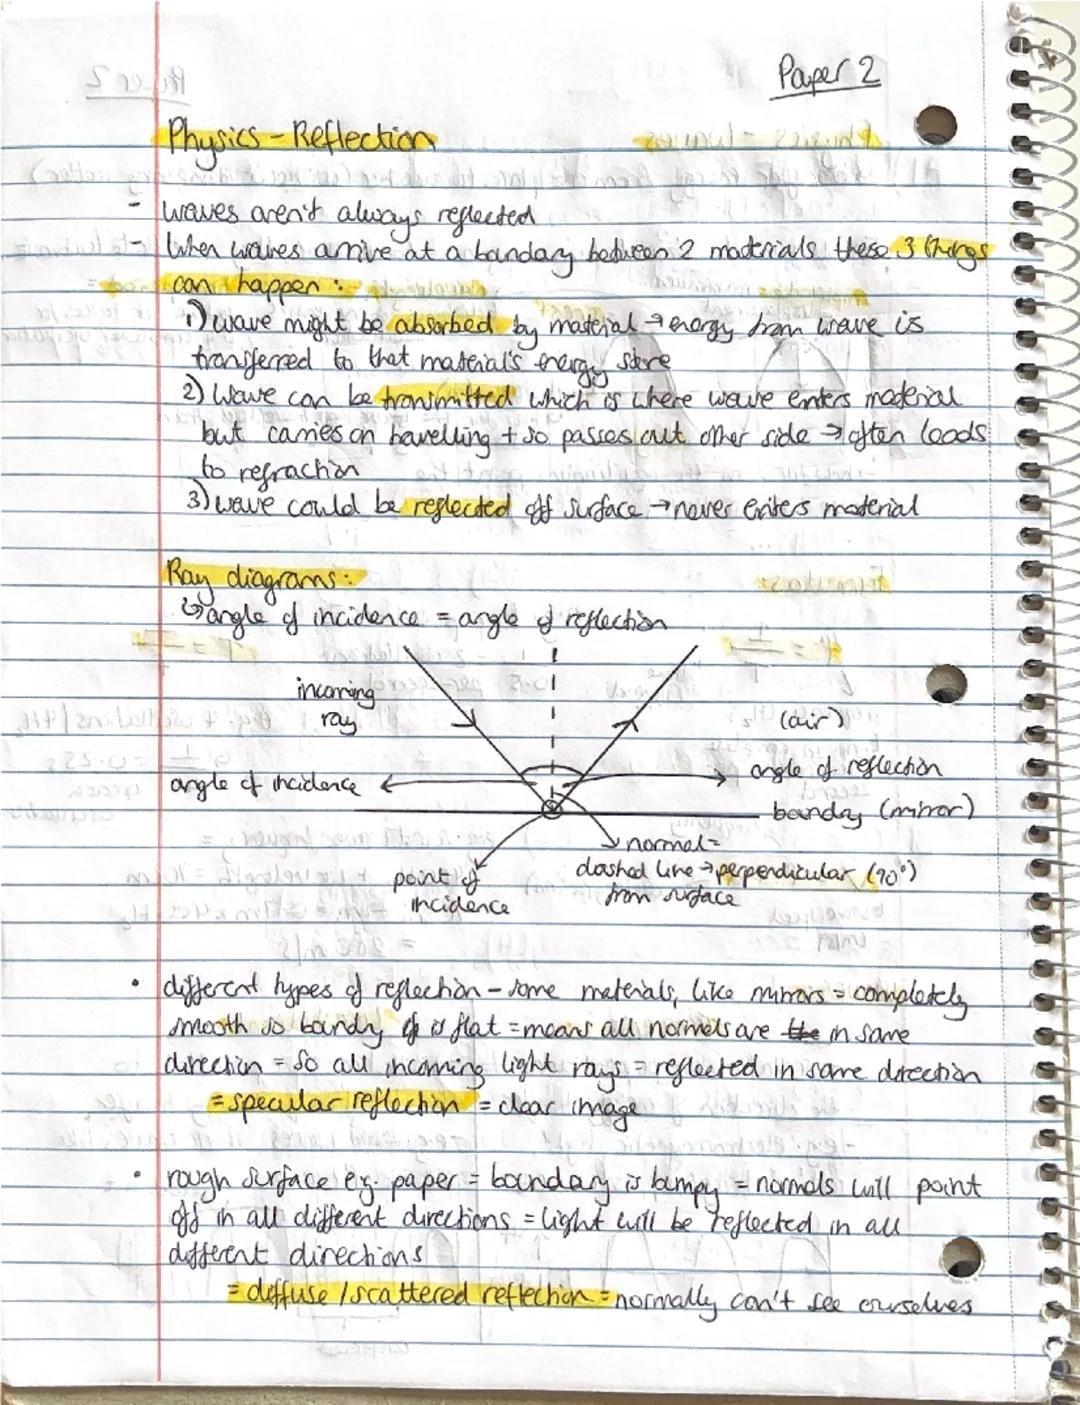 Paper 2
Physics - Reflection
- waves aren't always reflected
- When waves arrive at a bandary between 2 materials these 3 things
can happen :
1) wave might be absorbed by material → energy from wave is
transferred to that material's energy store
2) Wave can be transmitted which is where wave enters material
but carries on travelling + so passes out other side → often leads
to refraction
3) wave could be reflected off surface → never enters material
Ray diagrams :
↳ angle of incidence = angle of reflection
incoming
ray
(air)
angle of incidence
angle of reflection
bandry (mirror)
normal =
dashed line → perpendicular (90°)
from surface
point of
incidence
• different types of reflection - some materials, like mirrors = completely
smooth so bandry is flat = means all normals are the in same
direction = so all incoming light rays = reflected in same direction
= specular reflection = clear image
• rough surface e.g. paper = boundary is bumpy = normals will point
off in all different directions = light will be reflected in all
different directions
= diffuse / scattered reflection = normally can't see ourselves